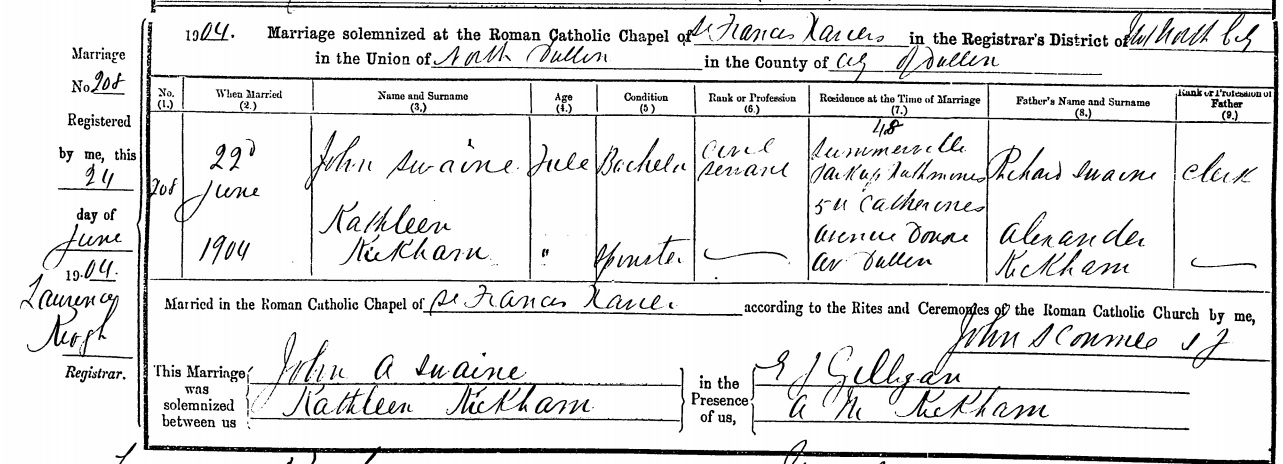 1904. Marriage solemnized at the Roman Catholic Chapel of St Francis Xaviers in the Registrar's District of North City
in the Union of North Dublin in the County of City of Dublin
Marriage
No. 208
Registered
by me, this
24
day of
June
1904.
Laurence
Keogh
Registrar.
No. (1.) When Married (2.) Name and Surname (3.) Age (4.) Condition (5.) Rank or Profession (6.) Residence at the Time of Marriage (7.) Father's Name and Surname (8.) Rank or Profession of Father (9.)
208
22d
June
1904
John Swaine Full Bachelor Civil
Servant
48
Summerville
Park Rathmines
Richard Swaine Clerk
Kathleen
Kickham " Spinster —
54 Catherines
Avenue Donore
Av Dublin
Alexander
Kickham —
Married in the Roman Catholic Chapel of St Francis Xavier according to the Rites and Ceremonies of the Roman Catholic Church by me,
John S Conmee S J
This Marriage was solemnized between us
John A Swaine
Kathleen Kickham
in the Presence of us,
E J Gilligan
A M Kickham